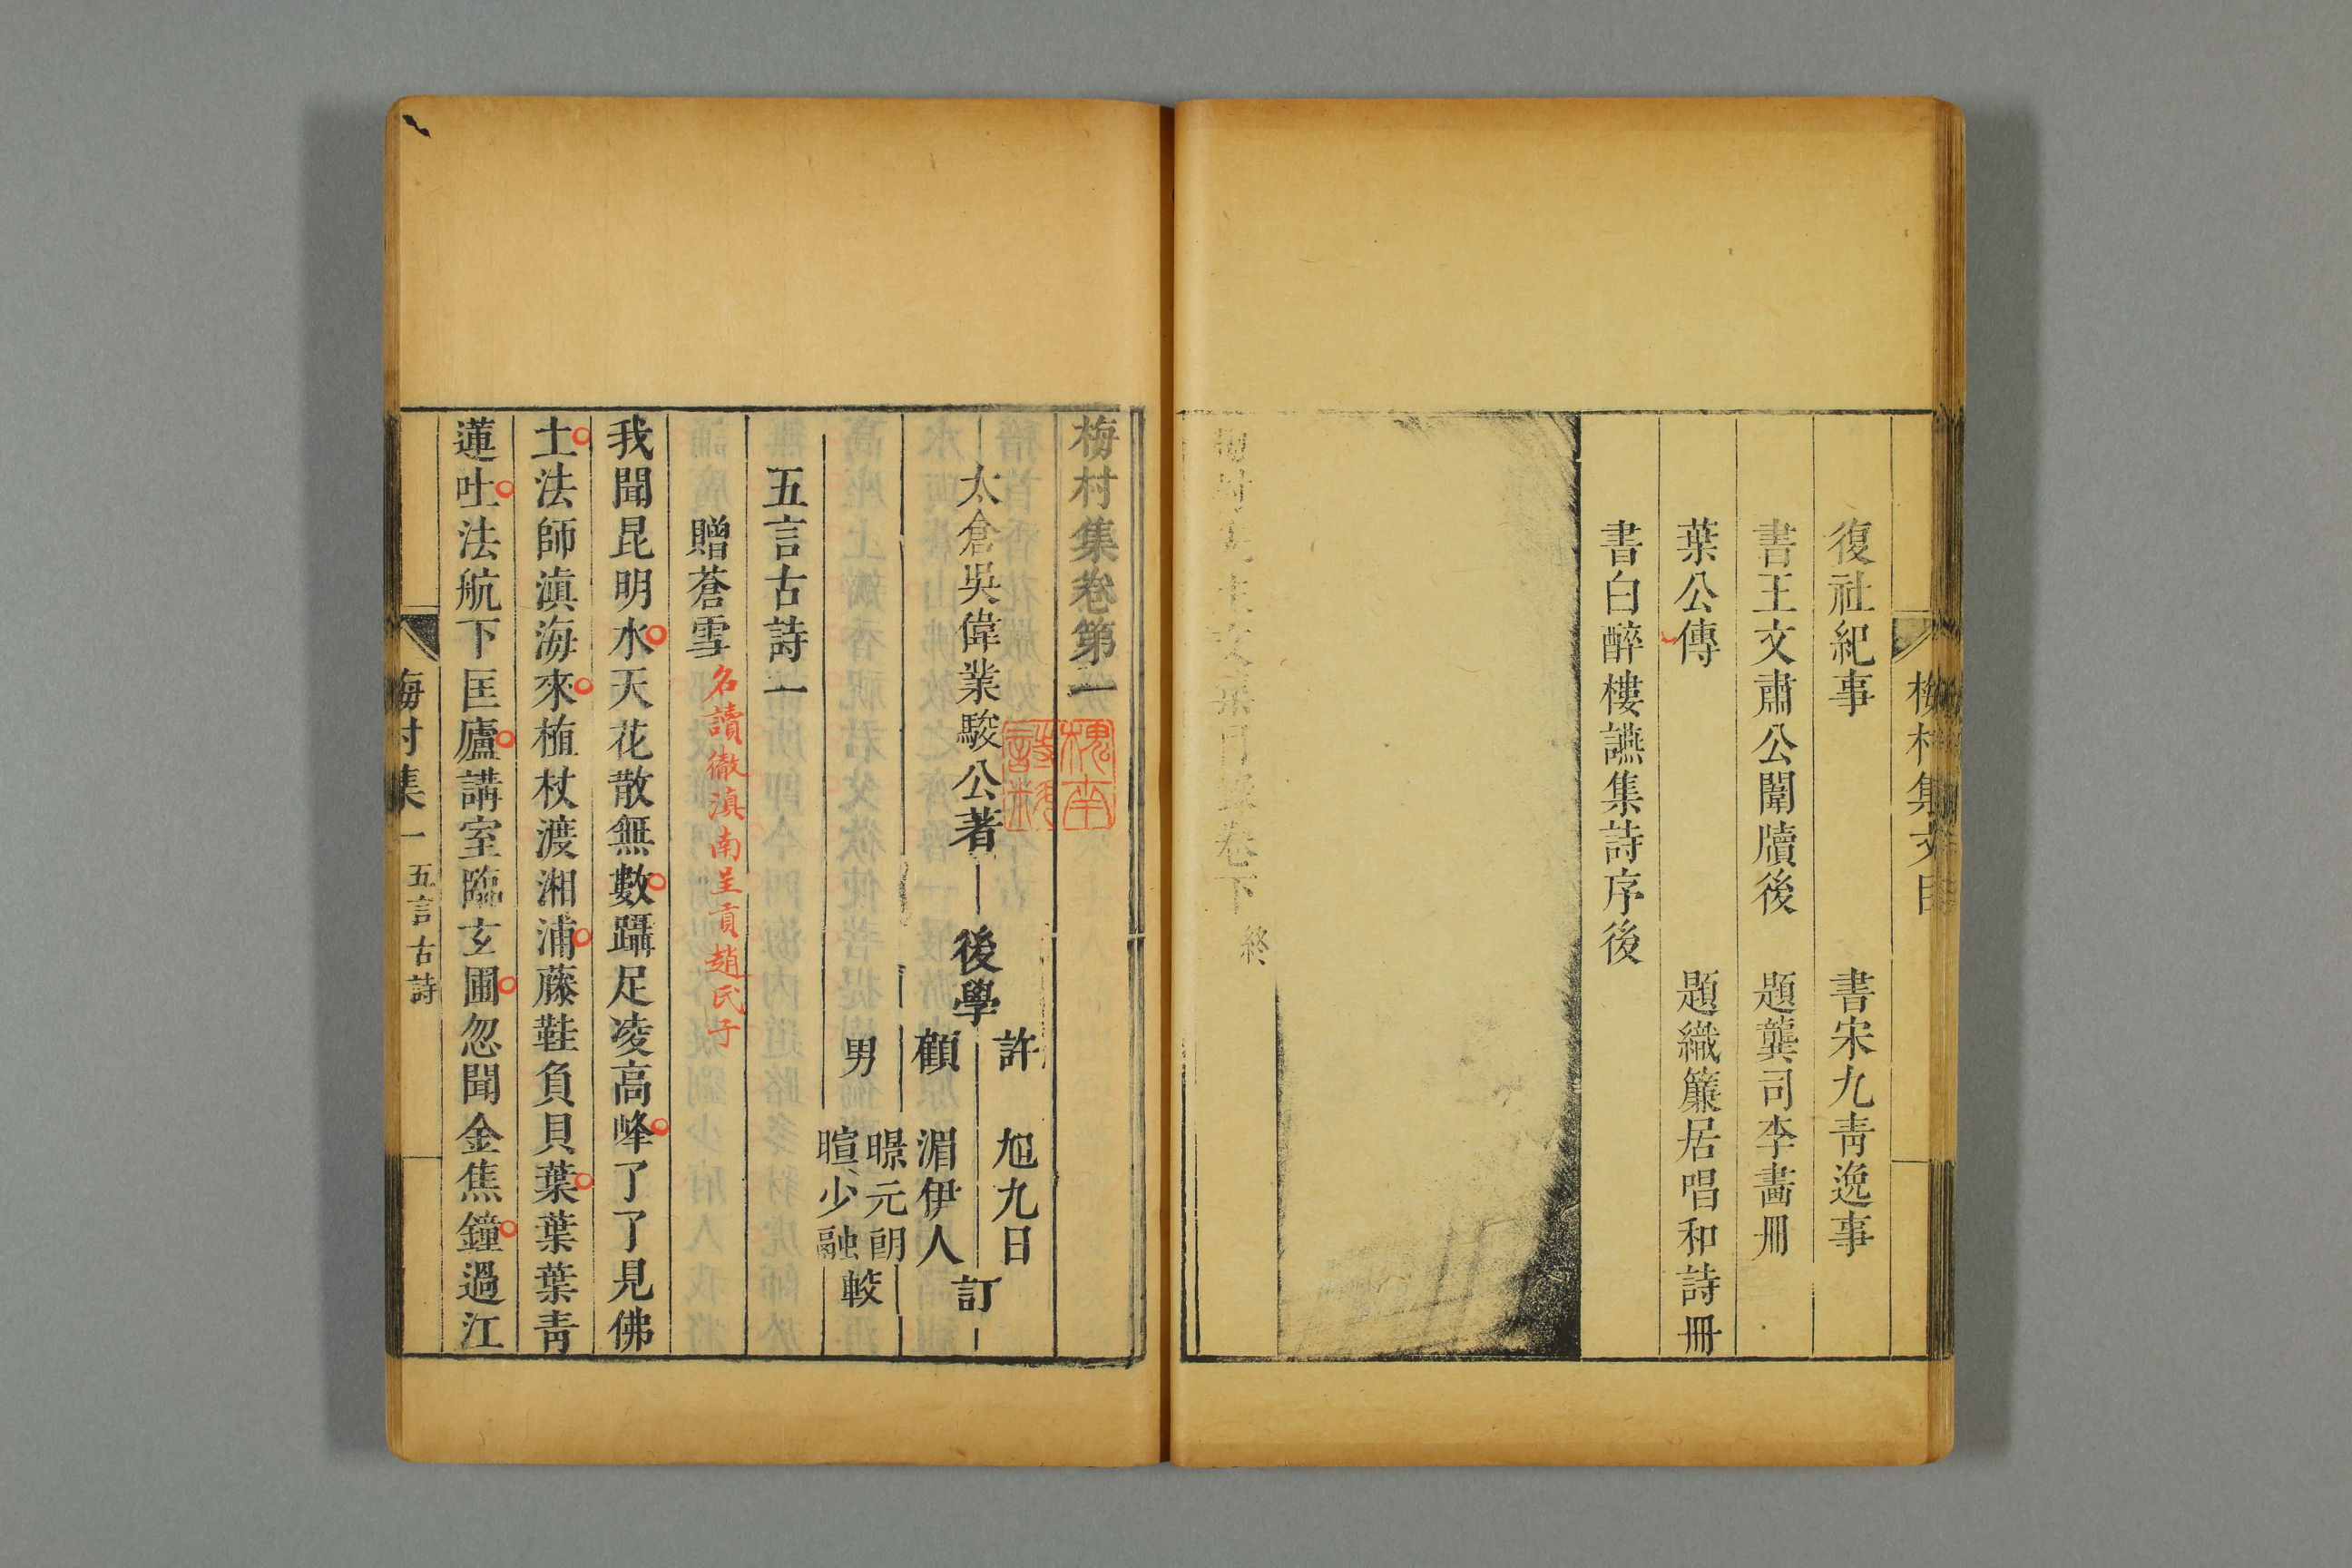 復社紀事 書宋九青逸事
書王文肅公闈牘後 題龔司李畵冊
葉公傳 題織簾居唱和詩冊
書白醉樓讌集詩序後
卷下 終
梅村集卷第一
太倉吳偉業駿公著 後學 許旭九日 顧湄伊人 訂
男 暻元朗 暄少融 較
五言古詩一
贈蒼雪 名讀徹滇南呈貢趙氏子
我聞昆明水天花散無數躡足凌高峰了了見佛
土法師滇海來植杖渡湘浦藤鞋負貝葉葉葉青
蓮吐法航下匡廬講室臨玄圃忽聞金焦鐘過江
梅村集 一 五言古詩